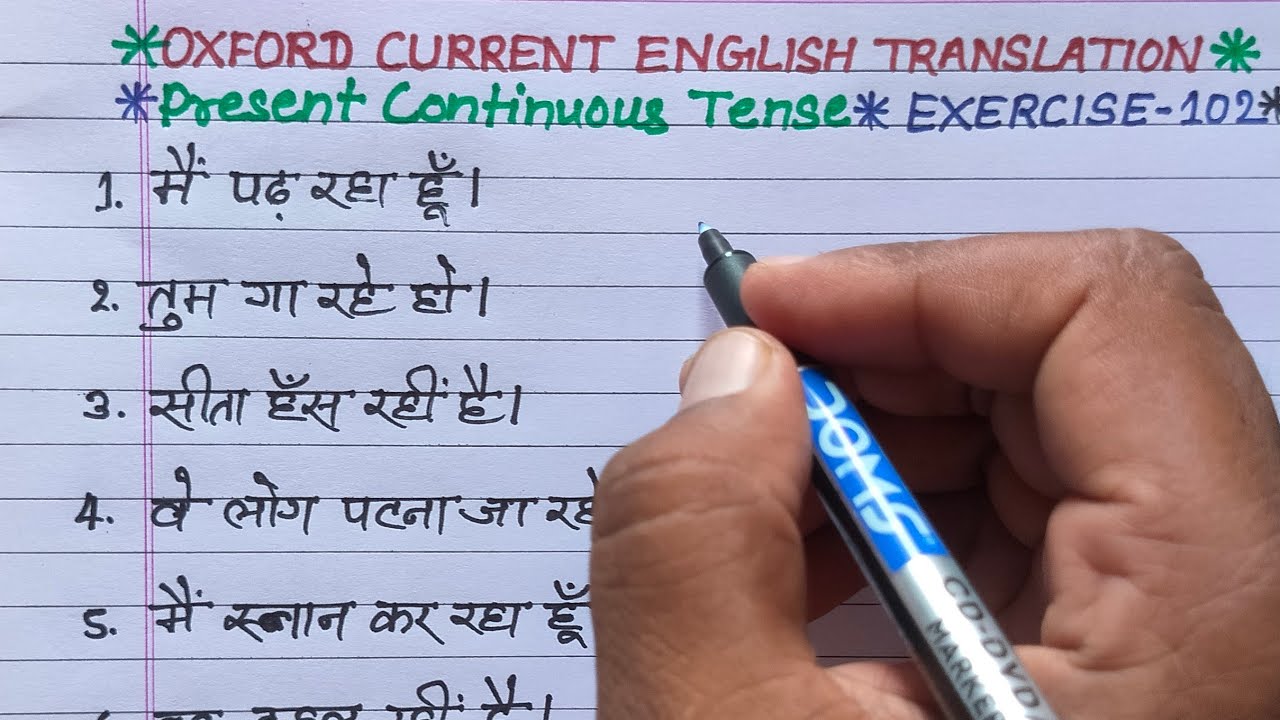 *OXFORD CURRENT ENGLISH TRANSLATION*
*Present Continuous Tense* EXERCISE-102*
1. मैं पढ़ रहा हूँ।
2. तुम गा रहे हो।
3. सीता हँस रहीं है।
4. वे लोग पटना जा रहे
5. मैं स्नान कर रहा हूँ
DOMS
CD-DVD
MARKER